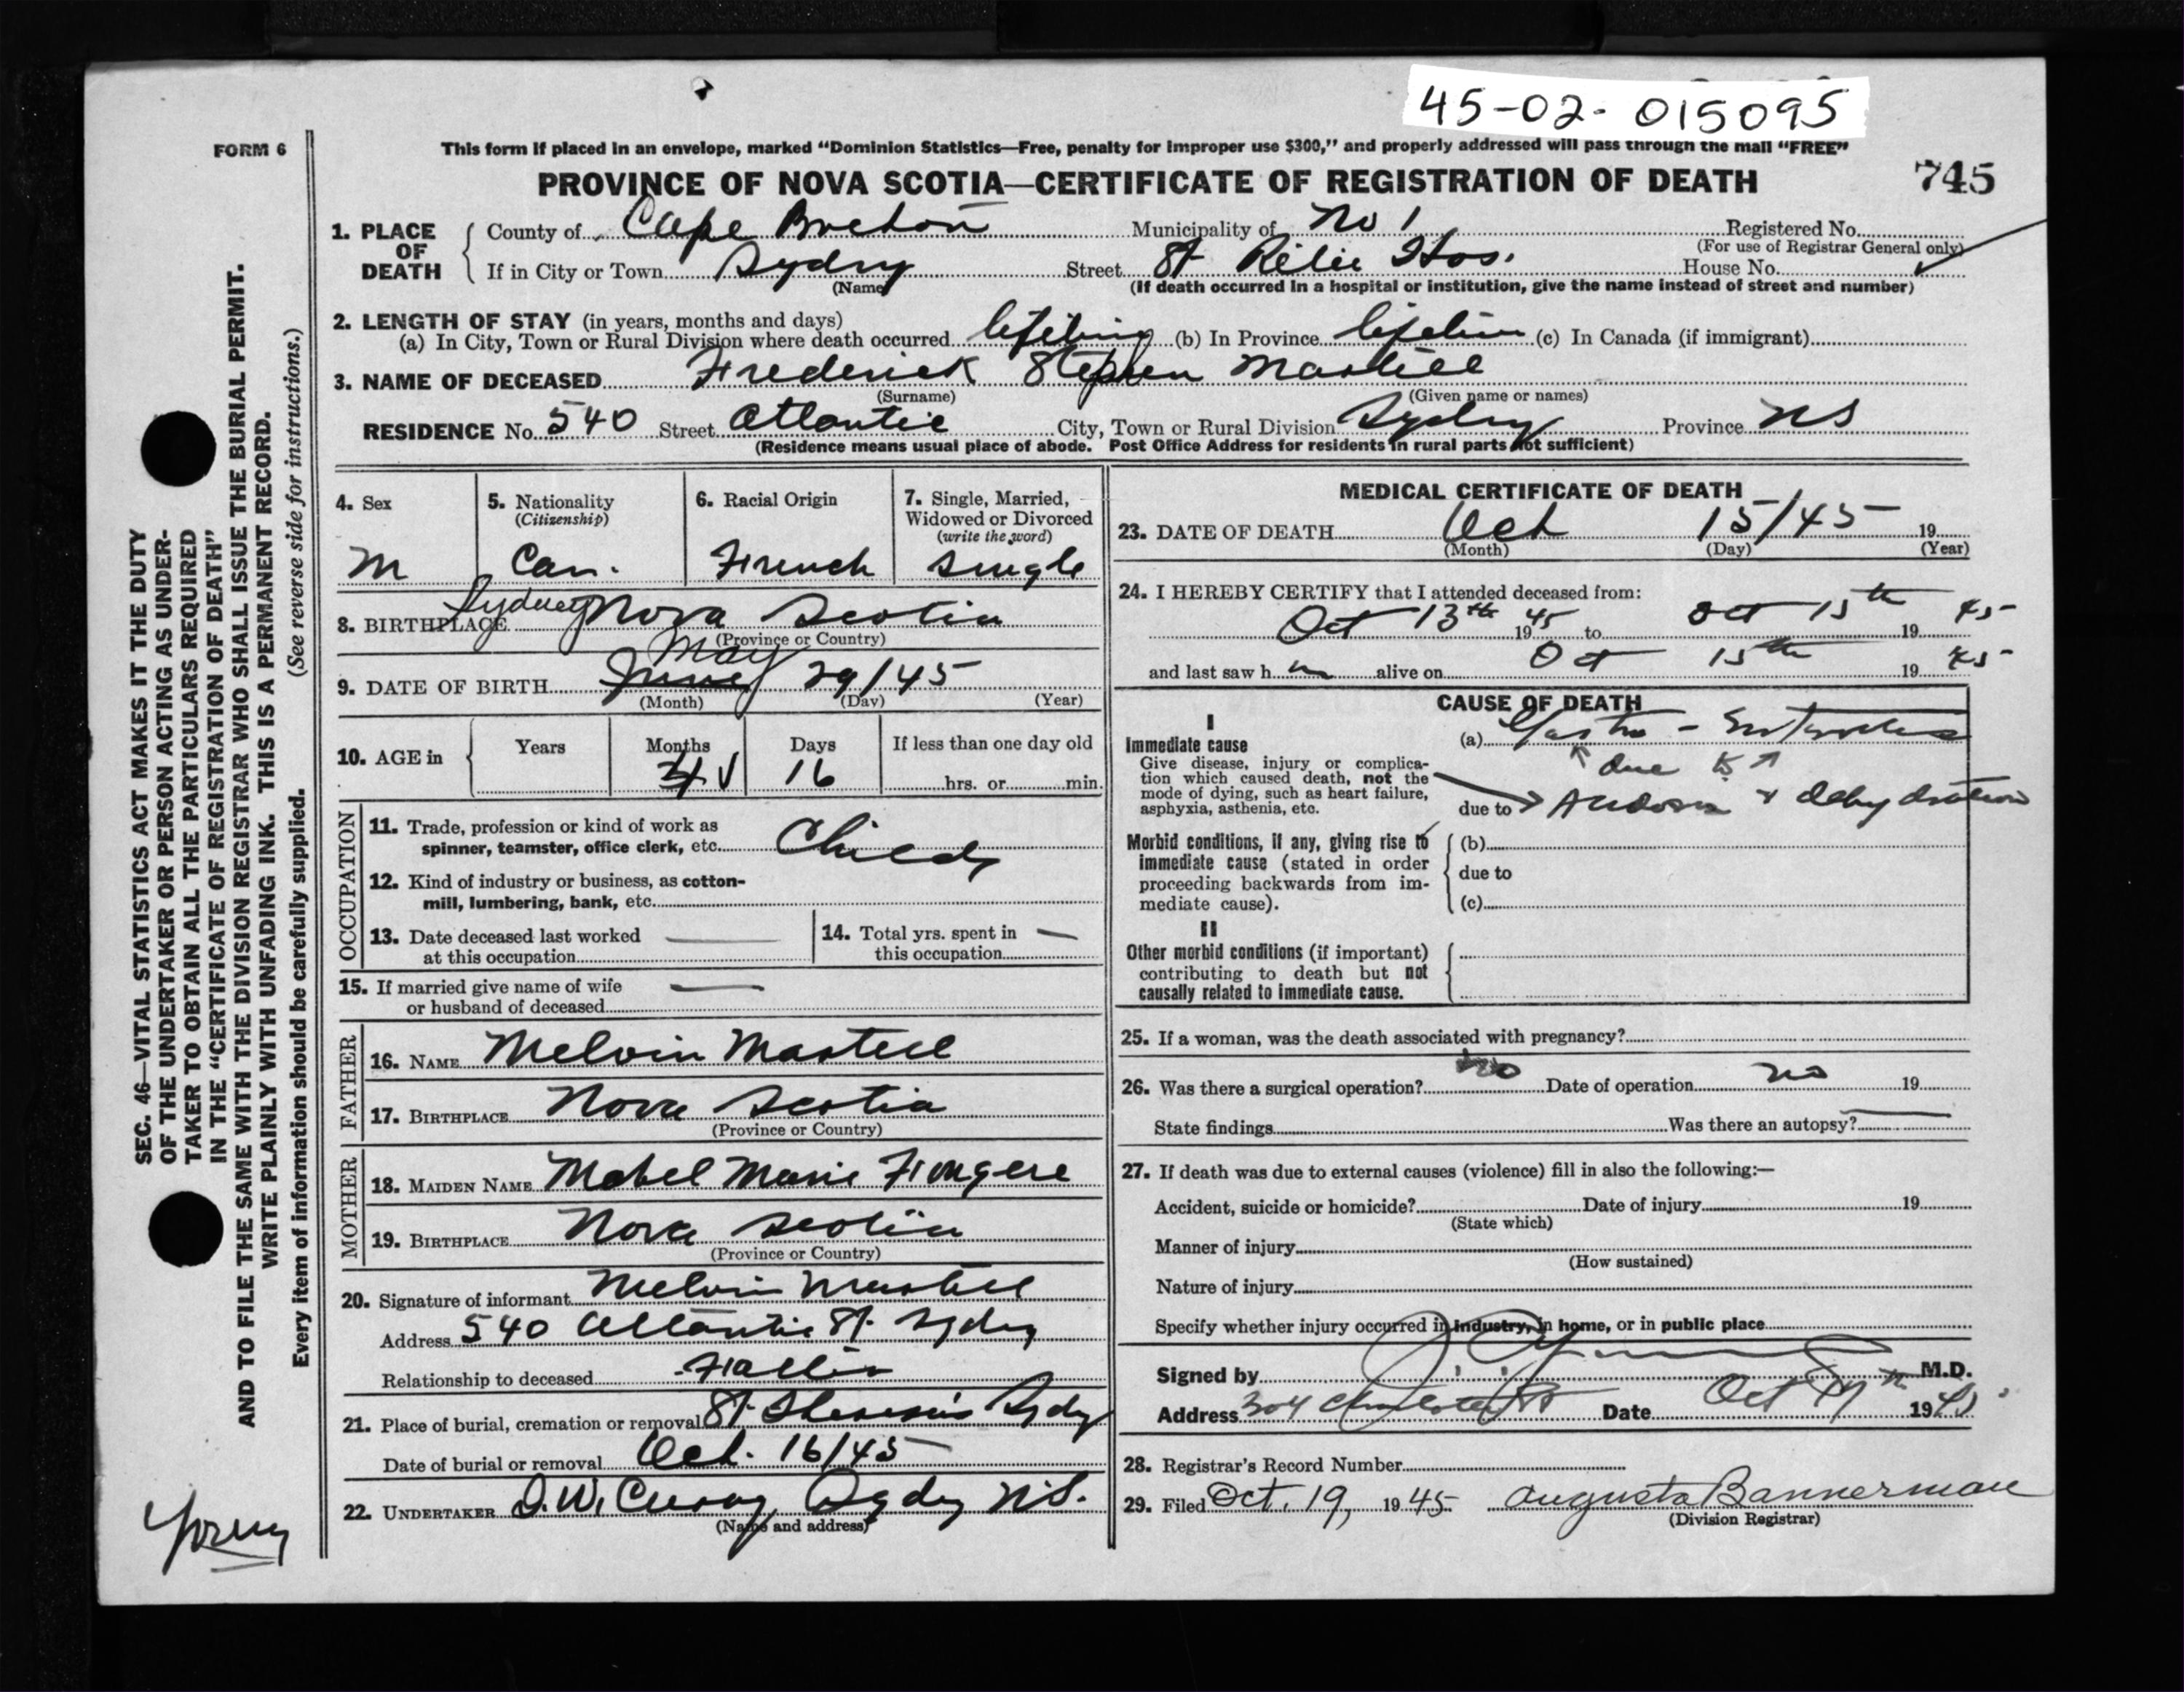 45-02- 015095
FORM 6
This form if placed in an envelope, marked "Dominion Statistics—Free, penalty for improper use $300," and properly addressed will pass through the mail "FREE"
PROVINCE OF NOVA SCOTIA—CERTIFICATE OF REGISTRATION OF DEATH 745
1. PLACE OF DEATH County of Cape Breton Municipality of No 1 Registered No.
(For use of Registrar General only)
If in City or Town Sydney Street St Hos. House No.
(Name) (If death occurred in a hospital or institution, give the name instead of street and number)
2. LENGTH OF STAY (in years, months and days)
(a) In City, Town or Rural Division where death occurred lifetime (b) In Province lifetime (c) In Canada (if immigrant)
3. NAME OF DECEASED Frederick Stephen Martell
(Surname) (Given name or names)
RESIDENCE No. 540 Street Atlantic City, Town or Rural Division Sydney Province NS
(Residence means usual place of abode. Post Office Address for residents in rural parts not sufficient)
4. Sex 5. Nationality (Citizenship) 6. Racial Origin 7. Single, Married, Widowed or Divorced (write the word)
M Can. French Single
8. BIRTHPLACE Sydney Nova Scotia
(Province or Country)
May
9. DATE OF BIRTH June 29/45
(Month) (Day) (Year)
10. AGE in Years Months Days If less than one day old
4 16 hrs. or min.
OCCUPATION
11. Trade, profession or kind of work as spinner, teamster, office clerk, etc. Child
12. Kind of industry or business, as cotton-mill, lumbering, bank, etc.
13. Date deceased last worked at this occupation —
14. Total yrs. spent in this occupation —
15. If married give name of wife or husband of deceased —
FATHER
16. NAME Melvin Martell
17. BIRTHPLACE Nova Scotia
(Province or Country)
MOTHER
18. MAIDEN NAME Mabel Marie
19. BIRTHPLACE Nova Scotia
(Province or Country)
20. Signature of informant Melvin Martell
Address 540 Atlantic St. Sydney
Relationship to deceased Father
21. Place of burial, cremation or removal St. Sydney
Date of burial or removal Oct. 16/45
22. UNDERTAKER Sydney N.S.
(Name and address)
MEDICAL CERTIFICATE OF DEATH
23. DATE OF DEATH Oct 15/45 19
(Month) (Day) (Year)
24. I HEREBY CERTIFY that I attended deceased from:
Oct 13th 1945 to Oct 15th 19 45
and last saw h m alive on Oct 15th 19 45
CAUSE OF DEATH
I
Immediate cause
Give disease, injury or complication which caused death, not the mode of dying, such as heart failure, asphyxia, asthenia, etc.
(a) Gastro - Enteritis
due to
due to Acidosis + dehydration
Morbid conditions, if any, giving rise to immediate cause (stated in order proceeding backwards from immediate cause).
(b)
due to
(c)
II
Other morbid conditions (if important) contributing to death but not causally related to immediate cause.
25. If a woman, was the death associated with pregnancy?
26. Was there a surgical operation? no Date of operation no 19
State findings Was there an autopsy? —
27. If death was due to external causes (violence) fill in also the following:—
Accident, suicide or homicide? Date of injury 19
(State which)
Manner of injury
(How sustained)
Nature of injury
Specify whether injury occurred in industry, in home, or in public place
Signed by M.D.
Address 304 Charlotte St Date Oct 1945
28. Registrar's Record Number
29. Filed Oct. 19, 1945. Augusta Bannerman
(Division Registrar)
SEC. 46—VITAL STATISTICS ACT MAKES IT THE DUTY
OF THE UNDERTAKER OR PERSON ACTING AS UNDER-
TAKER TO OBTAIN ALL THE PARTICULARS REQUIRED
IN THE "CERTIFICATE OF REGISTRATION OF DEATH"
AND TO FILE THE SAME WITH THE DIVISION REGISTRAR WHO SHALL ISSUE THE BURIAL PERMIT.
WRITE PLAINLY WITH UNFADING INK. THIS IS A PERMANENT RECORD.
Every item of information should be carefully supplied. (See reverse side for instructions.)